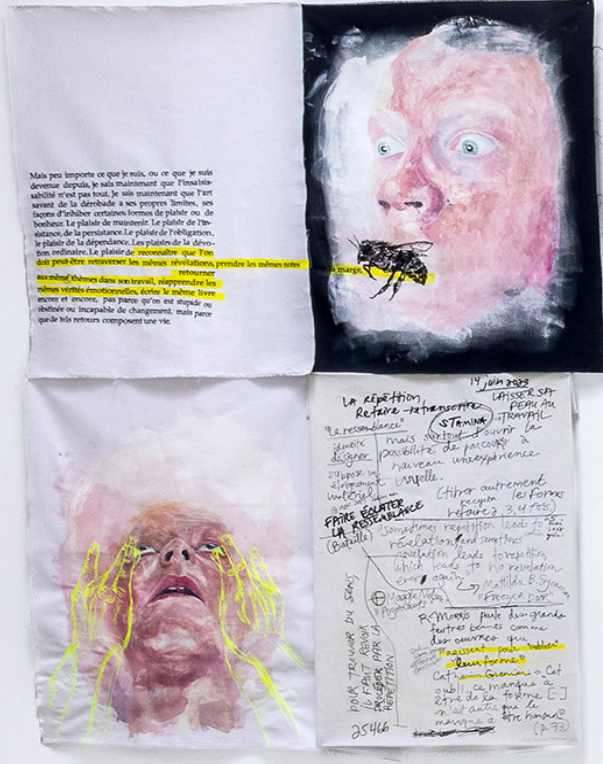 Mais peu importe ce que je suis, ou ce que je suis
devenue depuis, je sais maintenant que l'insaisis-
sabilité n'est pas tout. Je sais maintenant que l'art
savant de la dérobade a ses propres limites, ses
façons d'inhiber certaines formes de plaisir ou de
bonheur. Le plaisir de maintenir. Le plaisir de l'in-
sistance, de la persistance. Le plaisir de l'obligation,
le plaisir de la dépendance. Les plaisirs de la dévo-
tion ordinaire. Le plaisir de reconnaître que l'on
doit peut-être retraverser les mêmes révélations, prendre les mêmes notes
la marge,
retourner
aux même thèmes dans son travail, réapprendre les
mêmes vérités émotionnelles, écrire le même livre
encore et encore, pas parce qu'on est stupide ou
obstinée ou incapable de changement, mais parce
que de tels retours composent une vie.
14 juin 2023
LA RÉPÉTITION
Refaire - retranscrire
LAISSER SA
PEAU AU
TRAVAIL
STAMINA
"Le ressemblance"
identité
désigner
suppose un
éloignement
mais surtout d'ouvrir la
possibilité de parcourir à
nouveau une expérience
usuelle.
(tirer autrement
les formes
refaire 2, 3, 4 fois)
FAIRE ÉCLATER
LA RESSEMBLANCE
(Bataille)
"Sometimes repetition leads to
revelation and sometimes
revelation leads to repetition
which leads to no revelation
ever again"
Mathilda B.
Maggie Nelson
POUR TROUVER DU SENS
IL FAUT REVOIR
PROCÉDER PAR LA
RÉPÉTITION
25466
R. Morris parle des grands
feutres bennes comme
des œuvres qui
"agissent pour oublier"
"leur forme"
Catherine Grenier "Cet
oubli ce manque à
être de la forme [...]
n'est autre que le
manque à être humain"
(p. 73)